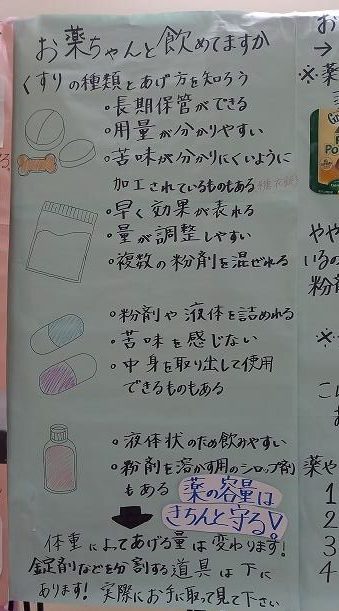 お薬ちゃんと飲めてますか
くすりの種類とあげ方を知ろう
・長期保管ができる
・用量が分かりやすい
・苦味が分かりにくいように
加工されているものもある
・早く効果が表れる
・量が調整しやすい
・複数の粉剤を混ぜれる
・粉剤や液体を詰めれる
・苦味を感じない
・中身を取り出して使用
できるものもある
・液体状のため飲みやすい
・粉剤を溶かす用のシロップ剤
もある
薬の容量は
きちんと守る!
体重によってあげる量は変わります!
錠剤などを分割する道具は下に
あります! 実際にお手に取って見て下さい
お
→
※薬
やや
いるの
粉剤
※
こ
薬や
1
2
3
4